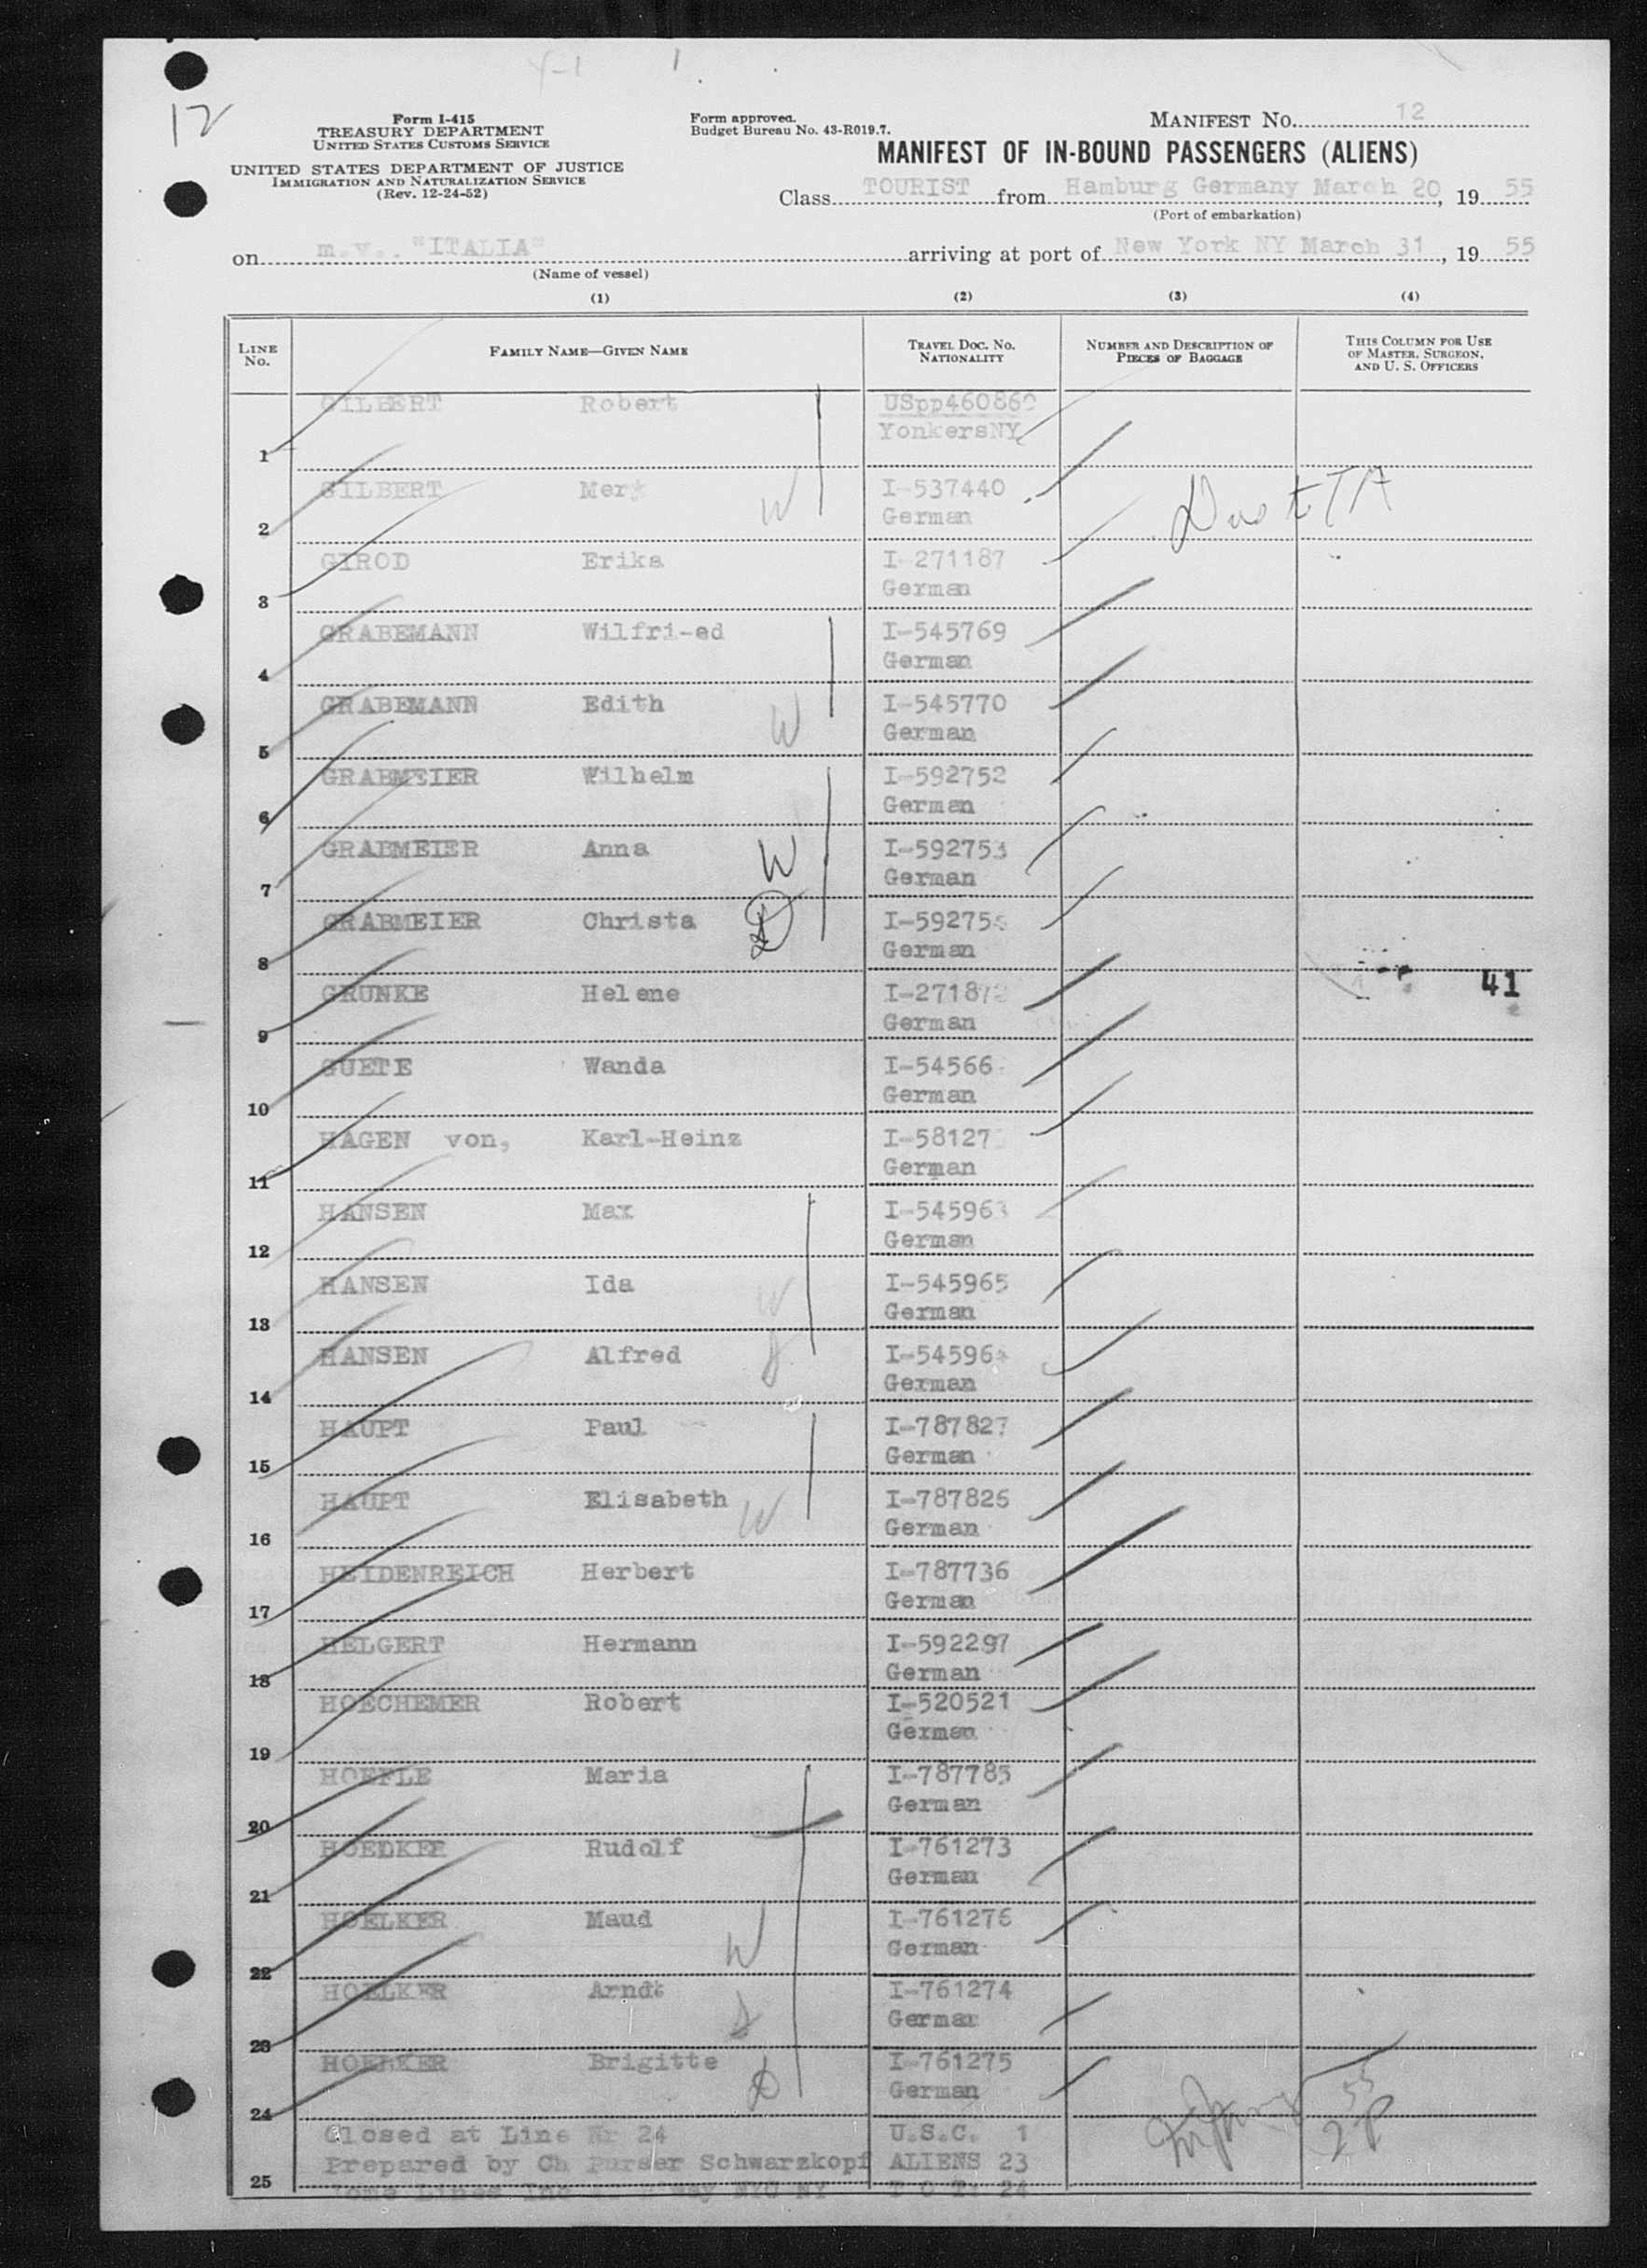 12
Form I-415
TREASURY DEPARTMENT
UNITED STATES CUSTOMS SERVICE
UNITED STATES DEPARTMENT OF JUSTICE
IMMIGRATION AND NATURALIZATION SERVICE
(Rev. 12-24-52)
Form approved.
Budget Bureau No. 43-R019.7.
MANIFEST NO. 12
MANIFEST OF IN-BOUND PASSENGERS (ALIENS)
Class TOURIST from Hamburg Germany March 20, 19 55
(Port of embarkation)
on m.v.. "ITALIA" arriving at port of New York NY March 31, 19 55
(Name of vessel)
(1) (2) (3) (4)
LINE NO. FAMILY NAME—GIVEN NAME TRAVEL DOC. NO. NATIONALITY NUMBER AND DESCRIPTION OF PIECES OF BAGGAGE THIS COLUMN FOR USE OF MASTER, SURGEON, AND U. S. OFFICERS
1 GILBERT Robert USpp460860
YonkersNY
2 GILBERT W I-537440
German
3 GIROD Erika I-271187
German
4 GRABEMANN Wilfri-ed I-545769
German
5 GRABEMANN Edith W I-545770
German
6 GRABMEIER Wilhelm I-592752
German
7 GRABMEIER Anna W I-592753
German
8 GRABMEIER Christa D
German
41
9 GRUNKE Helene
German
10 GUETE Wanda
German
11 HAGEN von, Karl-Heinz
German
12 HANSEN Max I-545963
German
13 HANSEN Ida W I-545965
German
14 HANSEN Alfred
German
15 HAUPT Paul I-787827
German
16 HAUPT Elisabeth W I-787826
German
17 HEIDENREICH Herbert I-787736
German
18 HELGERT Hermann I-592297
German
19 HOECHEMER Robert I-520521
German
20 HOEFLE Maria I-787785
German
21 Rudolf I-761273
German
22 HOELKER Maud W I-761276
German
23 HOELKER Arndt I-761274
German
24 Brigitte D I-761275
German
Closed at Line Nr 24 U.S.C. 1
25 Prepared by Ch Purser Schwarzkopf ALIENS 23
Home Lines Inc NYC NY T O T: 24